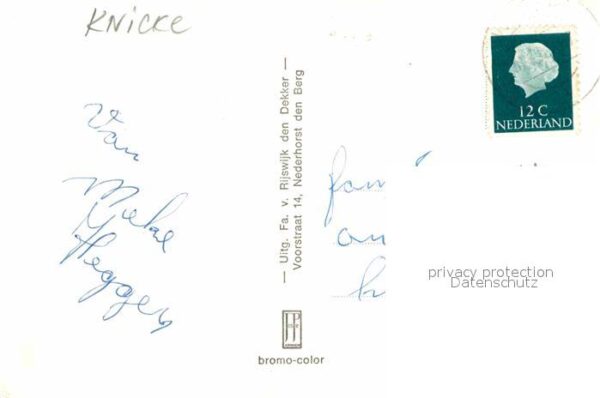 KNICKE
Van
Mieke
Heggers
— Uitg. Fa. v. Rijswijk den Dekker —
Voorstraat 14, Nederhorst den Berg
bromo-color
12 C
NEDERLAND
fam
privacy protection
Datenschutz